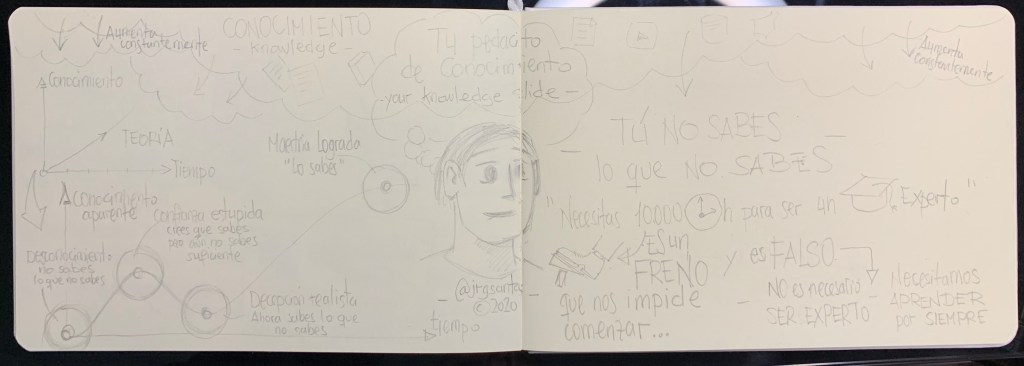 Aumenta
constantemente
CONOCIMIENTO
- Knowledge -
Tu pedacito
de Conocimiento
- your knowledge slide -
Aumenta
constantemente
Conocimiento
TEORÍA
Tiempo
Conocimiento
aparente
Desconocimiento
no sabes
lo que no sabes
confianza estupida
crees que sabes
pero que no sabes
suficiente
Maestría lograda
"Lo sabes"
Decepcion realista
Ahora sabes lo que
no sabes
tiempo
- @jrgsantos
©2020
- TÚ NO SABES -
lo que NO SABES
"Necesitas 10000 h para ser un Experto"
ES un
FRENO
que nos impide
comenzar...
y es FALSO
- NO es necesario -
SER EXPERTO
Necesitamos
APRENDER
por SIEMPRE